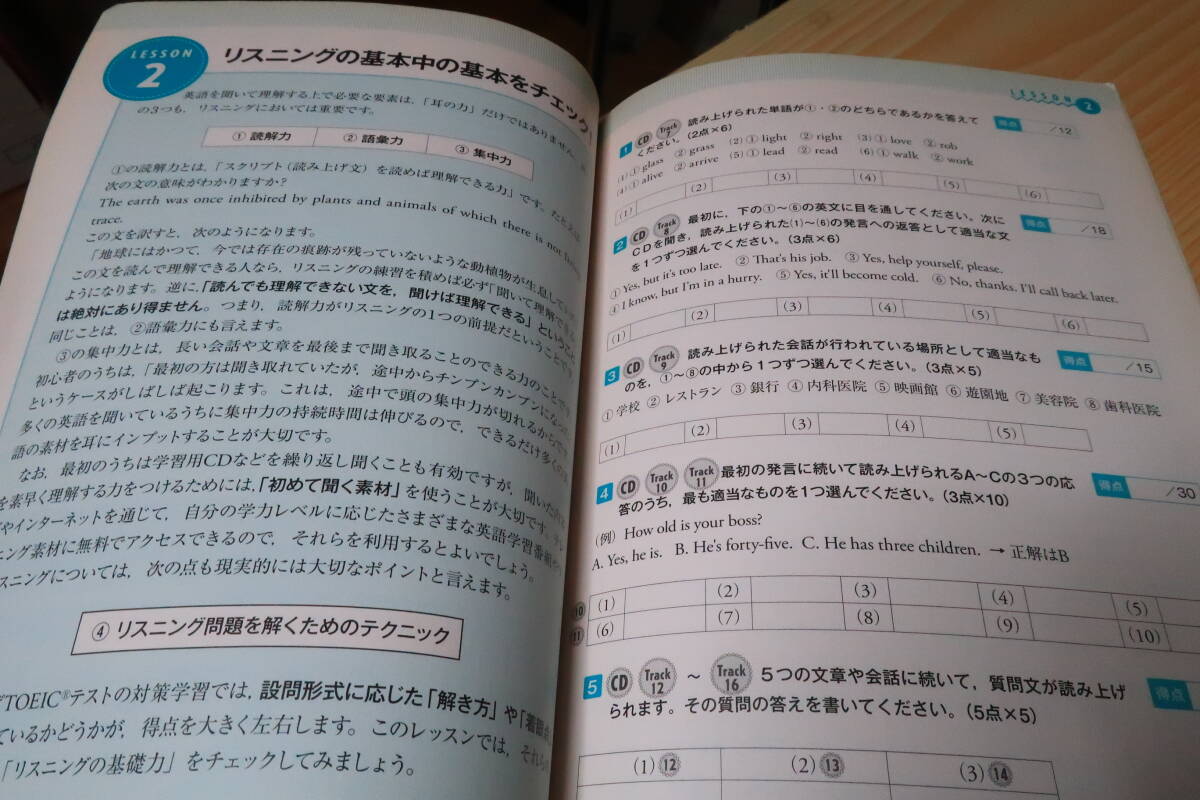 LESSON
2
リスニングの基本中の基本をチェック!
英語を聞いて理解する上で必要な要素は,「耳の力」だけではありません。
の3つも,リスニングにおいては重要です。
① 読解力 ② 語彙力 ③ 集中力
①の読解力とは,「スクリプト(読み上げ文)を読めば理解できる力」です。たとえば
次の文の意味がわかりますか?
The earth was once inhibited by plants and animals of which there is not
trace.
この文を訳すと,次のようになります。
「地球にはかつて,今では存在の痕跡が残っていないような動植物が生息して
この文を読んで理解できる人なら,リスニングの練習を積めば必ず「聞いて理解できる
ようになります。逆に,「読んでも理解できない文を,聞けば理解できる」という
は絶対にあり得ません。つまり,読解力がリスニングの1つの前提だということで
同じことは,②語彙力にも言えます。
③の集中力とは,長い会話や文章を最後まで聞き取ることのできる力のことで
初心者のうちは,「最初の方は聞き取れていたが,途中からチンプンカンプンになった
というケースがしばしば起こります。これは,途中で頭の集中力が切れるからで
多くの英語を聞いているうちに集中力の持続時間は伸びるので,できるだけ多くの
語の素材を耳にインプットすることが大切です。
なお,最初のうちは学習用CDなどを繰り返し聞くことも有効ですが,聞いた
を素早く理解する力をつけるためには,「初めて聞く素材」を使うことが大切です。
やインターネットを通じて,自分の学力レベルに応じたさまざまな英語学習番組や
ニング素材に無料でアクセスできるので,それらを利用するとよいでしょう。
スニングについては,次の点も現実的には大切なポイントと言えます。
④ リスニング問題を解くためのテクニック
TOEIC®テストの対策学習では,設問形式に応じた「解き方」や「着眼点
ているかどうかが,得点を大きく左右します。このレッスンでは,それらの
「リスニングの基礎力」をチェックしてみましょう。
LESSON 2
1 CD Track 7 読み上げられた単語が①・②のどちらであるかを答えて
ください。(2点×6)
得点 /12
(1) ① glass ② grass (2) ① light ② right (3) ① love ② rob
(4) ① alive ② arrive (5) ① lead ② read (6) ① walk ② work
(1) (2) (3) (4) (5) (6)
2 CD Track 8 最初に,下の①~⑥の英文に目を通してください。次に
CDを聞き,読み上げられた(1)~(6)の発言への返答として適当な文
を1つずつ選んでください。(3点×6)
得点 /18
① Yes, but it's too late. ② That's his job. ③ Yes, help yourself, please.
④ I know, but I'm in a hurry. ⑤ Yes, it'll become cold. ⑥ No, thanks. I'll call back later.
(1) (2) (3) (4) (5) (6)
3 CD Track 9 読み上げられた会話が行われている場所として適当なも
のを,①~⑧の中から1つずつ選んでください。(3点×5)
得点 /15
① 学校 ② レストラン ③ 銀行 ④ 内科医院 ⑤ 映画館 ⑥ 遊園地 ⑦ 美容院 ⑧ 歯科医院
(1) (2) (3) (4) (5)
4 CD Track 10 Track 11 最初の発言に続いて読み上げられるA~Cの3つの応
答のうち,最も適当なものを1つ選んでください。(3点×10)
得点 /30
(例) How old is your boss?
A. Yes, he is. B. He's forty-five. C. He has three children. → 正解はB
10 (1) (2) (3) (4) (5)
11 (6) (7) (8) (9) (10)
5 CD Track 12 ~ Track 16 5つの文章や会話に続いて,質問文が読み上げ
られます。その質問の答えを書いてください。(5点×5)
得点
(1) 12 (2) 13 (3) 14